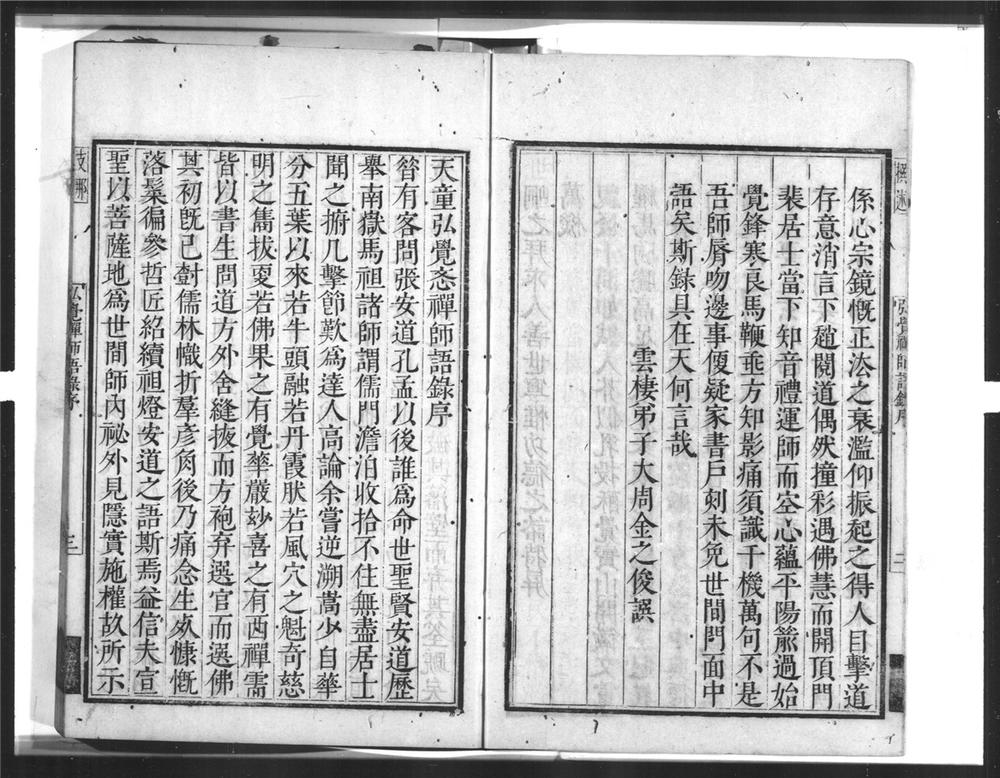 係心宗鏡慨正法之衰濫仰振起之得人目擊道
存意消言下趙閱道偶然撞彩遇佛慧而開頂門
裴居士當下知音禮運師而空心蘊平陽箭過始
覺鋒寒良馬鞭垂方知影痛須識千機萬句不是
吾師脣吻邊事便疑家書戶刻未免世間門面中
語矣斯錄具在天何言哉
雲棲弟子大周金之俊譔
弘覺禪師語錄序
二
天童弘覺忞禪師語錄序
昝有客問張安道孔孟以後誰為命世聖賢安道歷
舉南嶽馬祖諸師謂儒門澹泊收拾不住無盡居士
聞之撫几擊節歎為達人高論余嘗逆溯嵩少自華
分五葉以來若牛頭融若丹霞肰若風穴之魁奇慈
明之雋拔叓若佛果之有覺華嚴玅喜之有西禪需
皆以書生問道方外舍縫掖而方袍弃選官而選佛
其初旣已樹儒林幟折羣彥角後乃痛念生死慷慨
落髮徧參哲匠紹續祖燈安道之語斯焉益信夫宣
聖以菩薩地為世間師內祕外見隱實施權故所示
弘覺禪師語錄序
三
支那